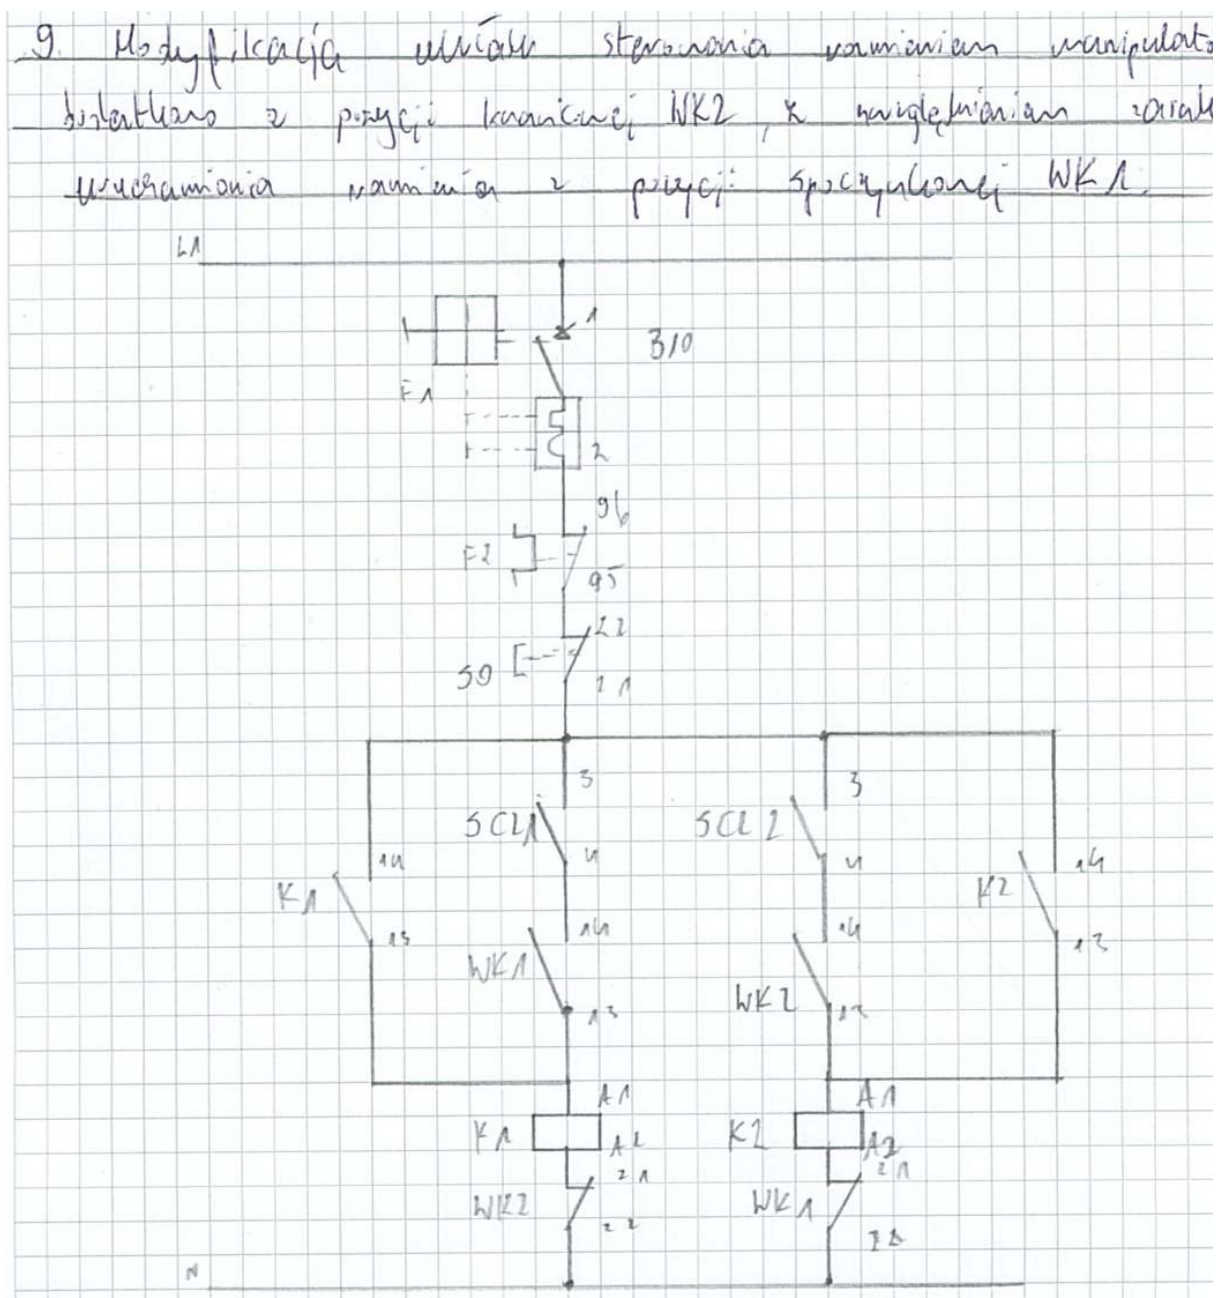 9. Modyfikacja układu sterowania ramieniem
z pozycji WK2, z uwzględnieniem
uruchamiania ramienia z pozycji spoczynkowej WK1.
L1
1
B10
F1
2
96
F2
95
22
S0
21
3 3
SCL1 SCL2
14 4 4 14
K1 K2
13 14 14 13
WK1 WK2
13 13
A1 A1
K1 K2
A2 A2
21 21
WK2 WK1
22
N